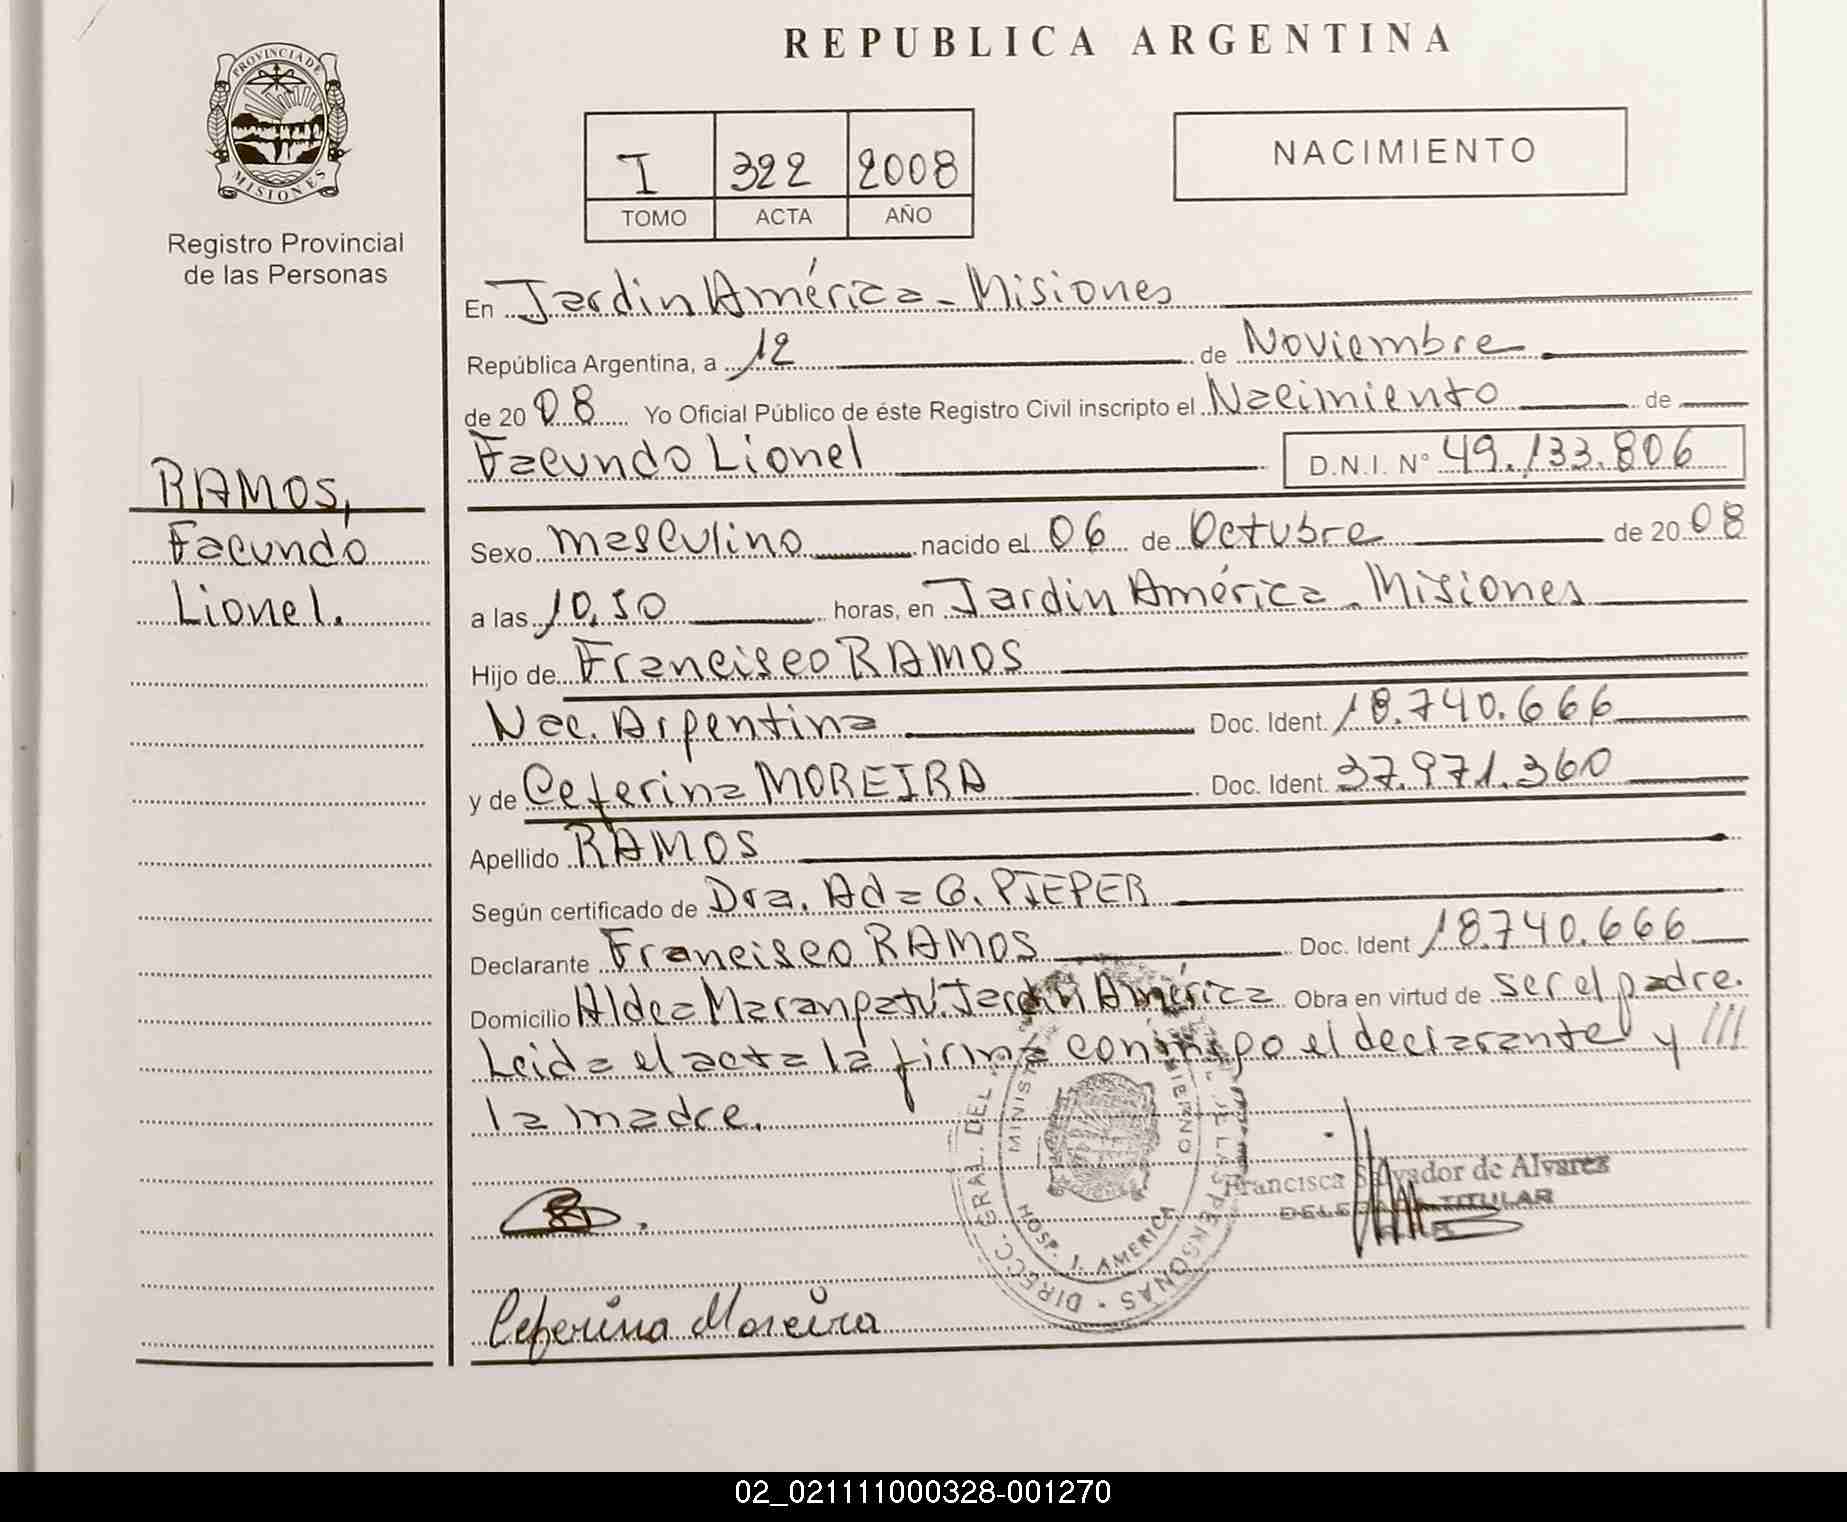 PROVINCIA DE
MISIONES
Registro Provincial
de las Personas
REPUBLICA ARGENTINA
I 322 2008
TOMO ACTA AÑO
NACIMIENTO
En Jardin América - Misiones
República Argentina, a 12 de Noviembre
de 2008 Yo Oficial Público de éste Registro Civil inscripto el Nacimiento de
Facundo Lionel D.N.I. N° 49.133.806
RAMOS,
Facundo
Lionel.
Sexo masculino nacido el 06 de Octubre de 2008
a las 10,50 horas, en Jardin América - Misiones
Hijo de Francisco RAMOS
Nac. Argentina Doc. Ident. 18.740.666
y de Ceferina MOREIRA Doc. Ident. 37.971.360
Apellido RAMOS
Según certificado de Dra. Ada G. PIEPER
Declarante Francisco RAMOS Doc. Ident 18.740.666
Domicilio Aldea Marangatú. Jardin América Obra en virtud de ser el padre.
Leida el acta la firma conmigo el declarante y ///
la madre.
DIRECC. GRAL. DEL DE LAS PERSONAS
HOSP. J. AMERICA
Francisca Salvador de Alvarez
TITULAR
Ceferina Moreira
02_021111000328-001270